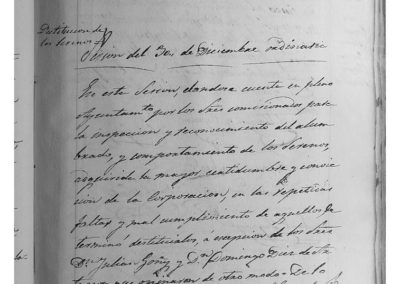 Destitucion de
los Serenos
Sesion del 30 de Diciembre ordinaria
En esta Sesion, dandose cuenta en pleno
Ayuntamto por los Sres comisionados para
la inspeccion y reconocimiento del alum
brado, y comportamiento de los Serenos,
adquirida la mayor certidumbre y convic
cion de la Corporacion, en las repetidas
faltas y mal cumplimiento de aquellos de
terminó destituirlos, á excepcion de los Sres
Dn Julian Goñi y Dn Domingo Diaz de
que opinaron de otro modo = De lo